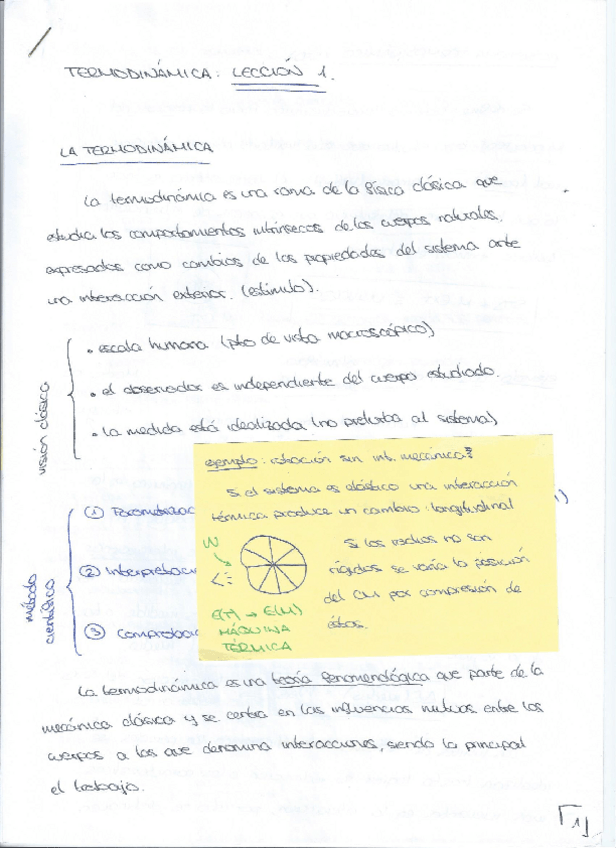 TERMODINÁMICA: LECCIÓN 1.
LA TERMODINÁMICA
La termodinámica es una rama de la física clásica que
estudia los comportamientos intrínsecos de los cuerpos naturales,
expresados como cambios de las propiedades del sistema ante
una interacción exterior. (estímulo).
visión clásica
• escala humana (pto de vista macroscópico)
• el observador es independiente del cuerpo estudiado.
• la medida está idealizada (no perturba al sistema)
método
científico
① Parametrizac
② Interpretació
③ Comprobació
ejemplo: rotación sin int. mecánica?
Si el sistema es elástico una interacción
térmica produce un cambio longitudinal
Si los radios no son
rígidos se varía la posición
del CM por compresión de
éstos.
E(T) → E(M)
MÁQUINA
TÉRMICA
La termodinámica es una teoría fenomenológica que parte de la
mecánica clásica y se centra en las influencias mutuas entre los
cuerpos a las que denomina interacciones, siendo la principal
el trabajo.
1